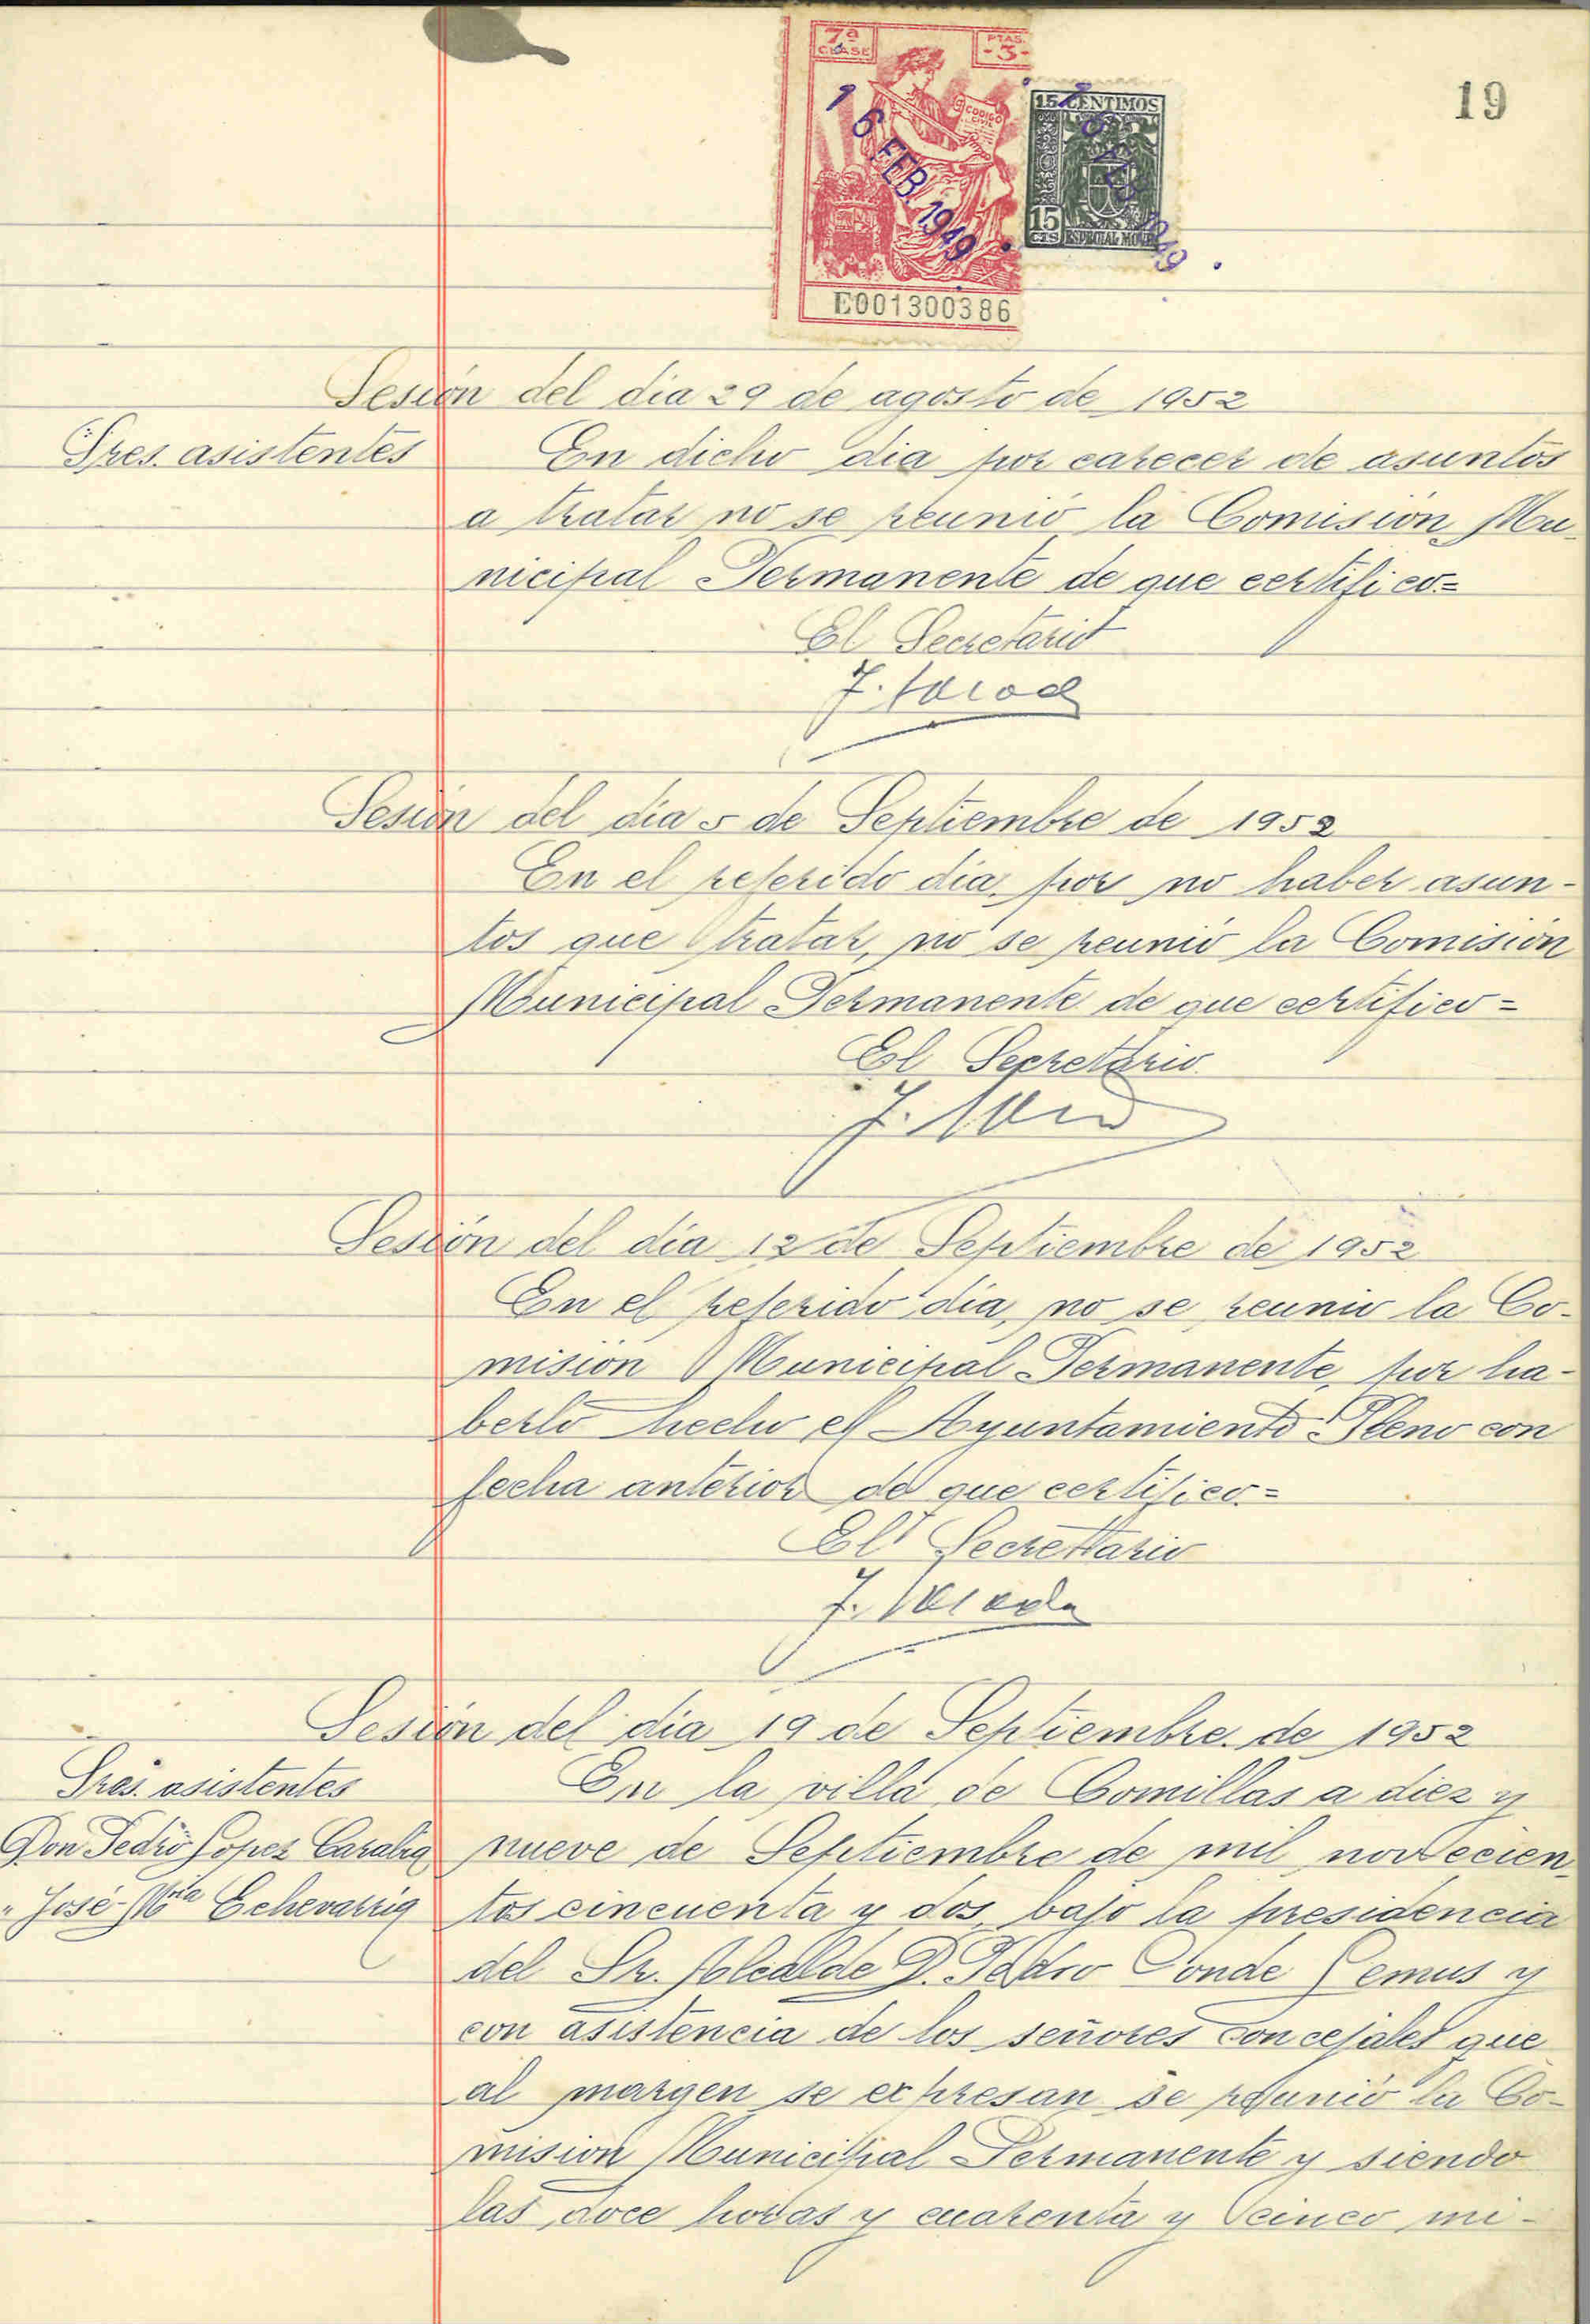 7ª
CLASE
PTAS.
-3-
CODIGO
CIVIL
16 FEB. 1949
E001300386
15 CENTIMOS
16 FEB 1949
15
CTS
ESPECIAL MOVIL
19
Sesión del dia 29 de agosto de 1952
Sres. asistentes
En dicho dia por carecer de asuntos
a tratar no se reunió la Comisión Mu-
nicipal Permanente de que certifico=
El Secretario
J.
Sesión del día 5 de Septiembre de 1952
En el referido día, por no haber asun-
tos que tratar, no se reunió la Comisión
Municipal Permanente de que certifico=
El Secretario
J.
Sesión del día 12 de Septiembre de 1952
En el referido día, no se reunio la Co-
misión Municipal Permanente, por ha-
berlo hecho el Ayuntamiento Pleno con
fecha anterior de que certifico.=
El Secretario
J.
Sesión del día 19 de Septiembre de 1952
Sres. asistentes
Don Pedro Lopez
" José Mría Echevarria
En la villa de Comillas a diez y
nueve de Septiembre de mil novecien-
tos cincuenta y dos, bajo la presidencia
del Sr. Alcalde D. Pedro Conde Lemus y
con asistencia de los señores concejales que
al margen se expresan se reunió la Co-
mision Municipal Permanente y siendo
las doce horas y cuarenta y cinco mi-